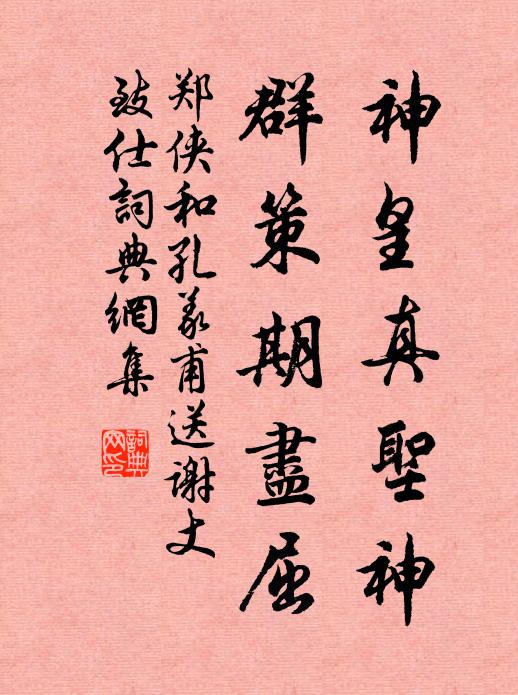 神皇真聖神
群策期盡屈
郑侠和孔義甫送谢丈
致仕詞典網集
詞典網印